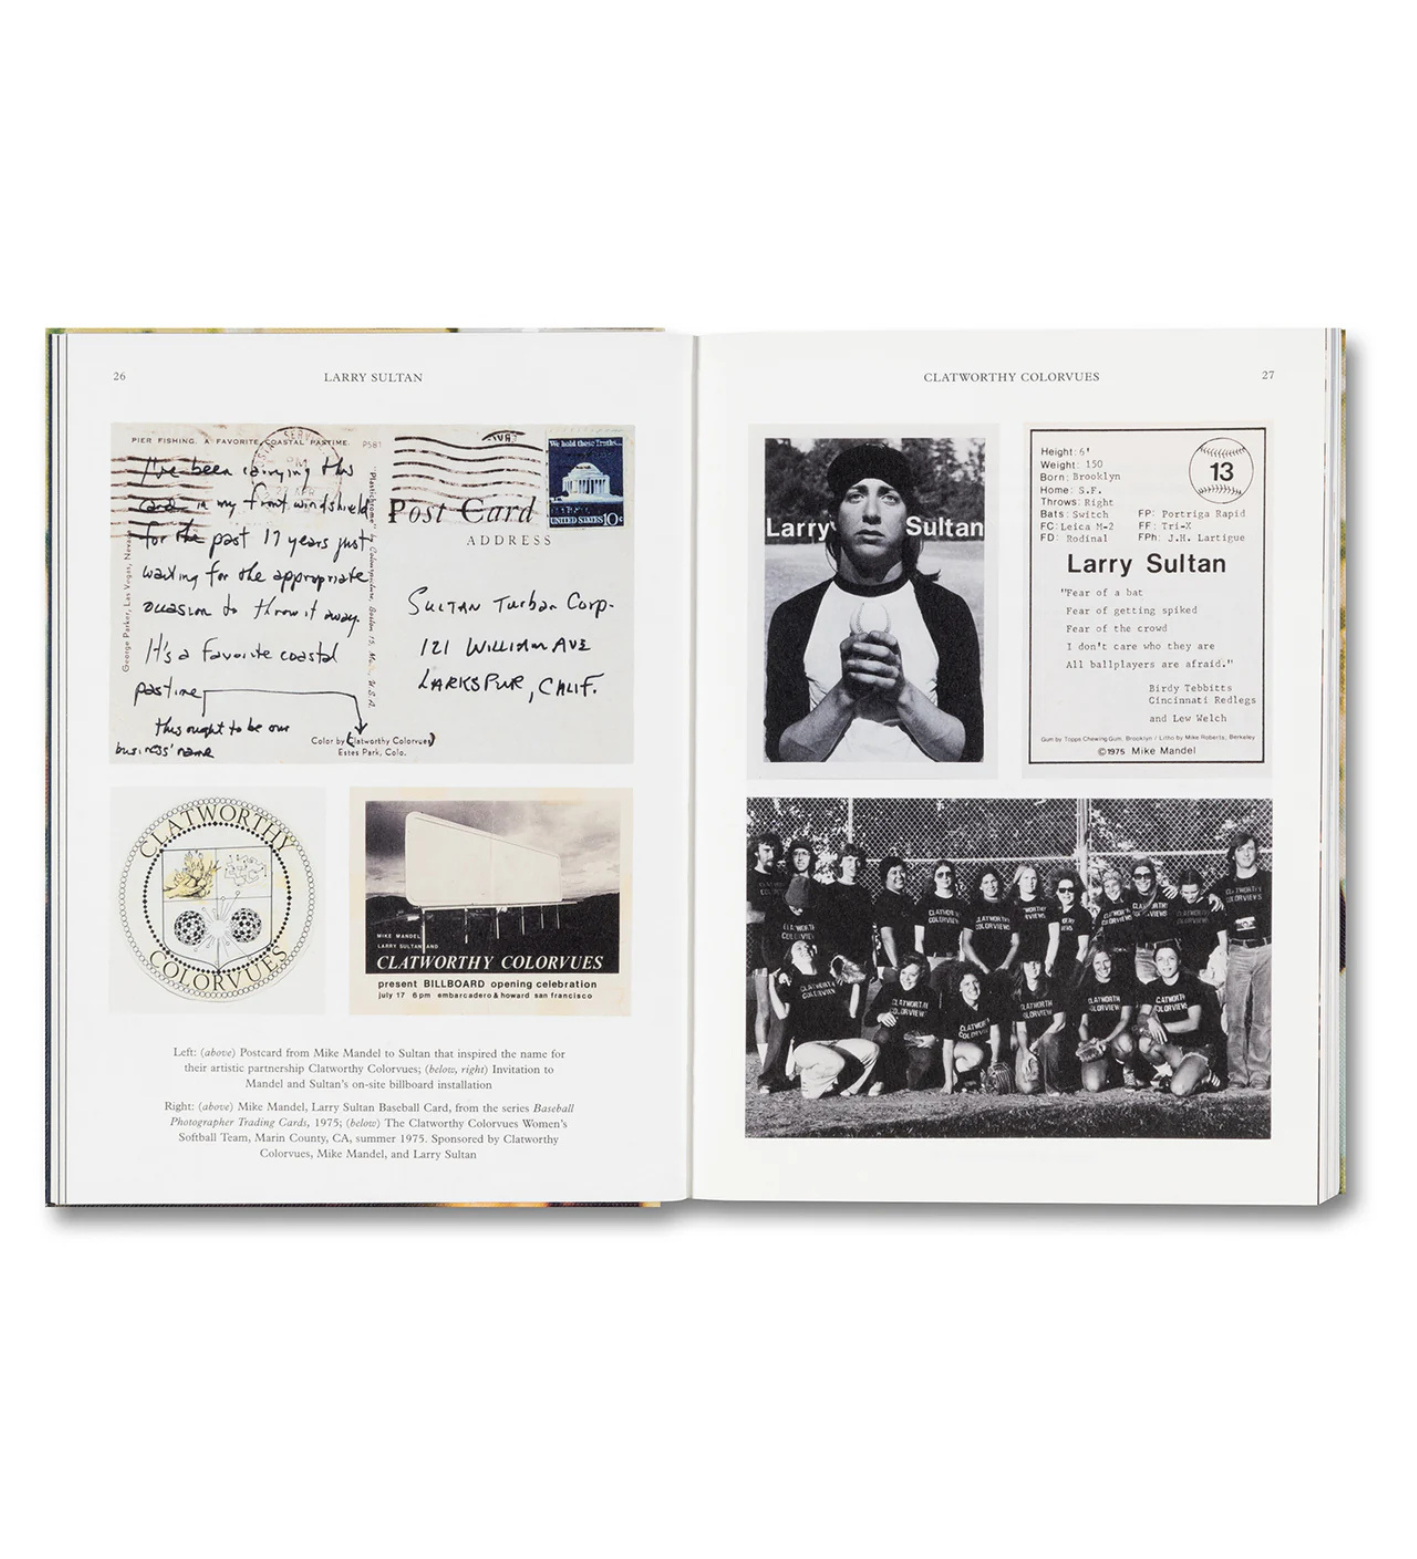 26
LARRY SULTAN
PIER FISHING. A FAVORITE COASTAL PASTIME.
P581
I've been carrying this
card in my front windshield
for the past 17 years just
waiting for the appropriate
occasion to throw it away.
It's a favorite coastal
pastime
this ought to be our
business' name
George Parker, Las Vegas, Nevada
We hold these Truths...
UNITED STATES 10c
Post Card
ADDRESS
SULTAN Turban Corp.
121 WILLIAM AVE
LARKSPUR, CALIF.
Color by Clatworthy Colorvues
Estes Park, Colo.
CLATWORTHY
COLORVUES
MIKE MANDEL
LARRY SULTAN AND
CLATWORTHY COLORVUES
present BILLBOARD opening celebration
july 17 6pm embarcadero & howard san francisco
Left: (above) Postcard from Mike Mandel to Sultan that inspired the name for
their artistic partnership Clatworthy Colorvues; (below, right) Invitation to
Mandel and Sultan's on-site billboard installation
Right: (above) Mike Mandel, Larry Sultan Baseball Card, from the series Baseball
Photographer Trading Cards, 1975; (below) The Clatworthy Colorvues Women's
Softball Team, Marin County, CA, summer 1975. Sponsored by Clatworthy
Colorvues, Mike Mandel, and Larry Sultan
CLATWORTHY COLORVUES
27
Larry Sultan
Height: 6'
Weight: 150
Born: Brooklyn
Home: S.F.
Throws: Right
Bats: Switch FP: Portriga Rapid
FC: Leica M-2 FF: Tri-X
FD: Rodinal FPh: J.H. Lartigue
13
Larry Sultan
"Fear of a bat
Fear of getting spiked
Fear of the crowd
I don't care who they are
All ballplayers are afraid."
Birdy Tebbitts
Cincinnati Redlegs
and Lew Welch
Gum by Topps Chewing Gum, Brooklyn / Litho by Mike Roberts, Berkeley
©1975 Mike Mandel